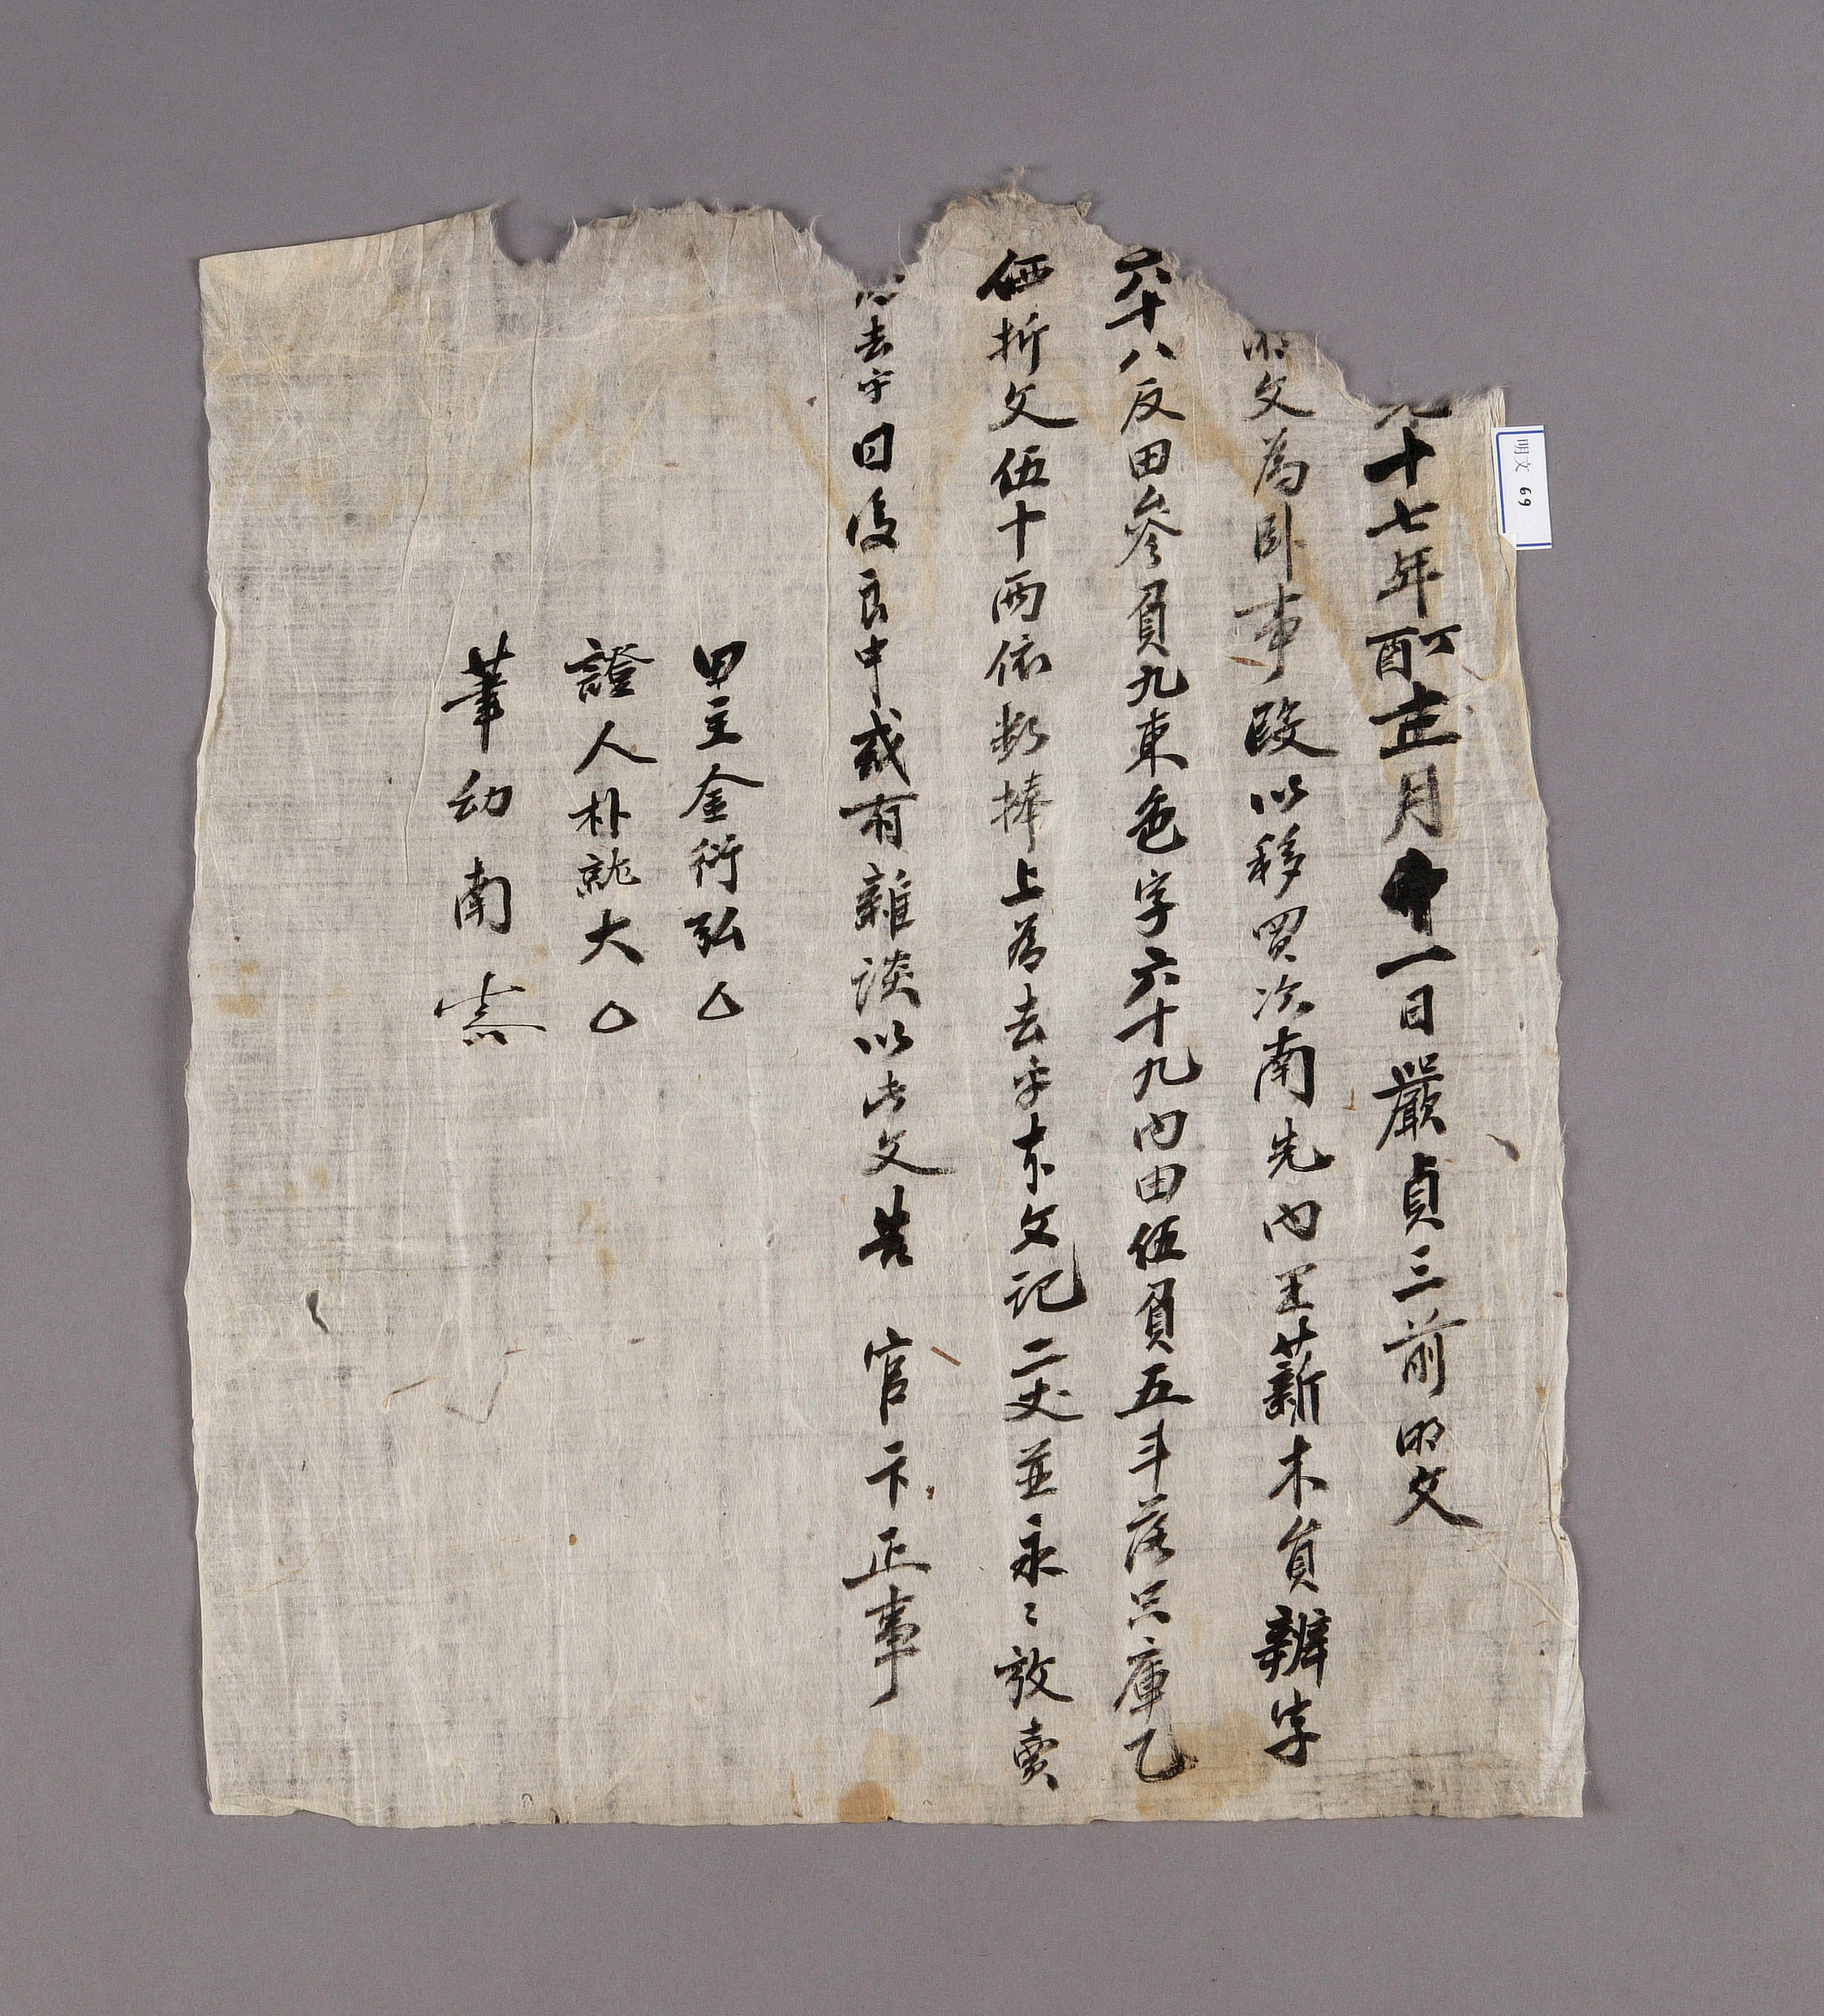 光十七年丁酉正月廿一日嚴貞三前明文
明文為卧事段以移買次南先內王薪木員辨字
六十八反田參負九束色字六十九內田伍負五斗落只庫乙
価折文伍十兩依數捧上為去乎本文記二丈並永〻放賣
為去乎日後良中或有雜談以此文告 官卞正事
田主金衍弘
證人朴就大
筆幼南
明文 69